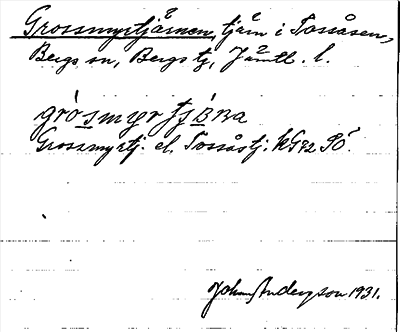 Grossmyrtjärnen, tjärn i Tossåsen,
Bergs sn, Bergs tj, Jämtl. l.
gròsmyr
Grossmyrtj. el. Tossåstj. kG72 SÖ.
John Anderson 1931.